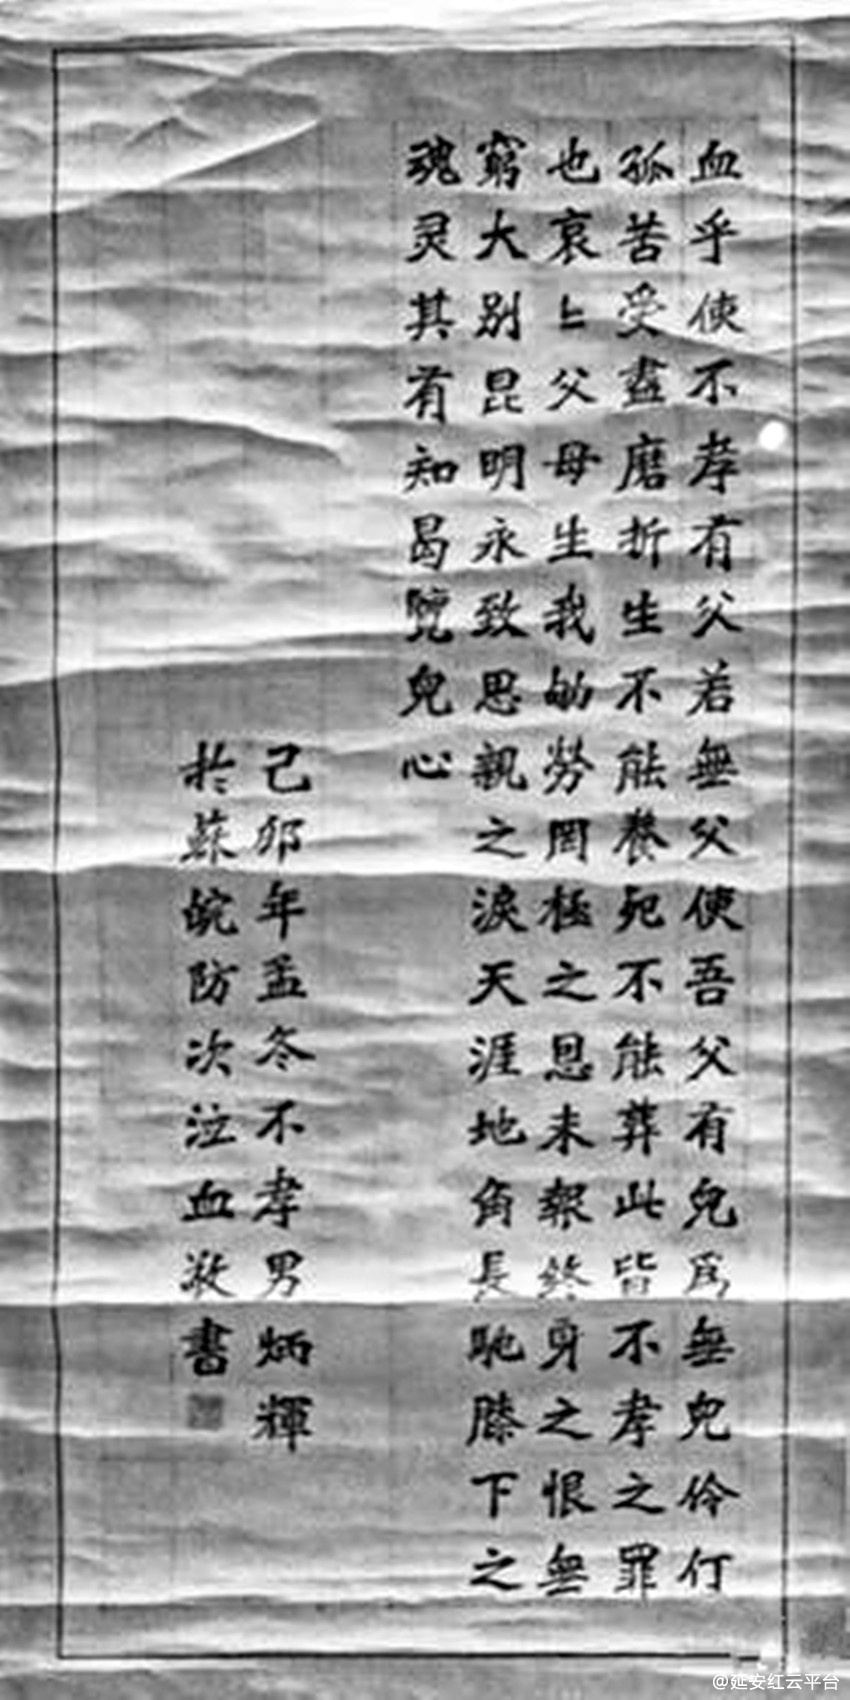 血乎使不孝有父若無父使吾父有兒爲無兒伶仃
孤苦受盡磨折生不能養死不能葬此皆不孝之罪
也哀ヒ父母生我劬勞罔極之恩未報終身之恨無
窮大別昆明永致思親之淚天涯地角長馳膝下之
魂灵其有知曷覽兒心
己卯年孟冬不孝男炳輝
扵蘇皖防次泣血敬書
@延安红云平台